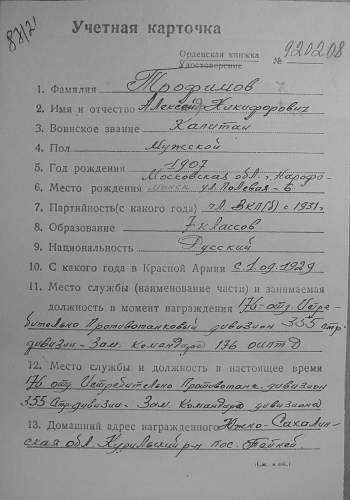 87/21
Учетная карточка
Орденская книжка
Удостоверение № 920208
1. Фамилия Трофимов
2. Имя и отчество Александр Никифорович
3. Воинское звание Капитан
4. Пол Мужской
5. Год рождения 1907
Московская обл. г. Нарофо-
6. Место рождения минск ул. Полевая-6
7. Партийность(с какого года) чл. ВКП(б) с 1931г.
8. Образование 7 классов
9. Национальность Русский
10. С какого года в Красной Армии с 1.09.1929
11. Место службы (наименование части) и занимаемая
должность в момент награждения 176-отд. Истре-
бительно Противотанковый дивизион 355 стр.
дивизии-Зам. Командира 176 оиптД
12. Место службы и должность в настоящее время
176 отд Истребительно Противотанк. дивизион
355 Стр. дивизии-Зам. Командира дивизиона
13. Домашний адрес награжденного Южно-Сахалин-
ская обл. Курильский р-н пос. Тейней.